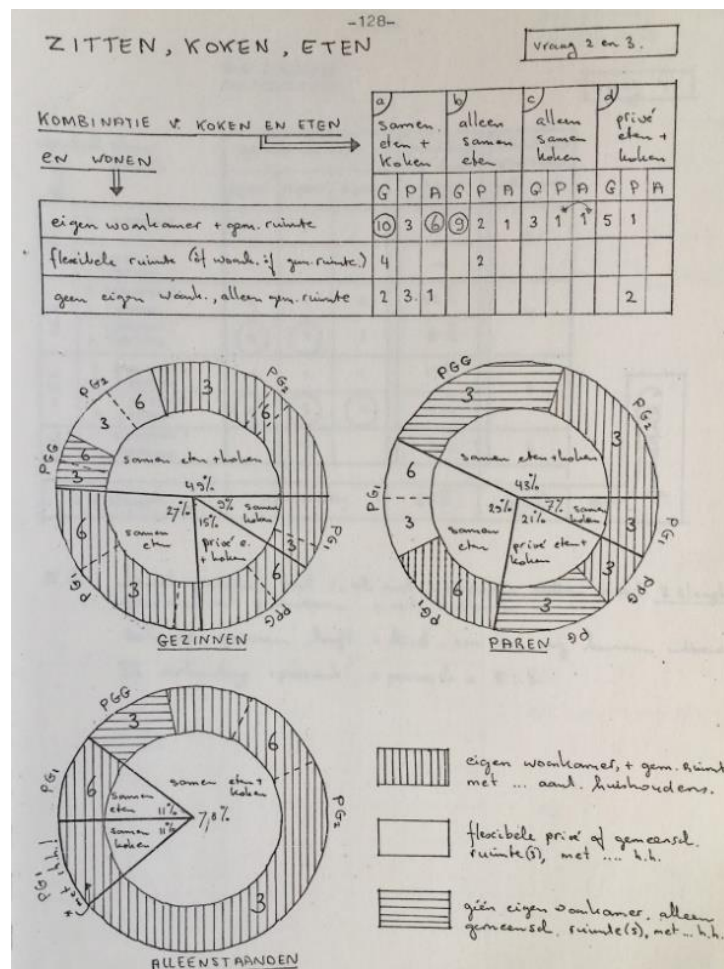 -128-
ZITTEN, KOKEN, ETEN
vraag 2 en 3.
KOMBINATIE V. KOKEN EN ETEN
EN WONEN
a b c d
samen eten + koken
alleen samen eten
alleen samen koken
privé eten + koken
G P A G P A G P A G P A
eigen woonkamer + gem. ruimte 10 3 6 9 2 1 3 1 1 5 1
flexibele ruimte (óf woonk. óf gem. ruimte.) 4 2
geen eigen woonk., alleen gem. ruimte 2 3. 1 2
PG2
PG2
PGG
3 6 3 6
6 3
samen eten + koken
49%
27% 9% samen koken
15%
samen eten
privé e. + koken
6 3 3 6
PG1
PG1
PG1
PPG
GEZINNEN
PGG
PG2
3 3
samen eten + koken
43%
6 3
PG1
29% 7% samen koken
21%
samen eten
privé eten + koken
3
PG1
6 3 3
PG1
PPG
PG
PAREN
PGG
3 6
PG1
6
samen eten + koken
samen eten 11%
samen koken 11%
PG2
PG1
3
ALLEENSTAANDEN
eigen woonkamer, + gem. ruimt
met ... aant. huishoudens.
flexibele privé of gemeensch.
ruimte(s), met .... h.h.
géén eigen woonkamer. alleen
gemeensch. ruimte(s), met ... h.h.